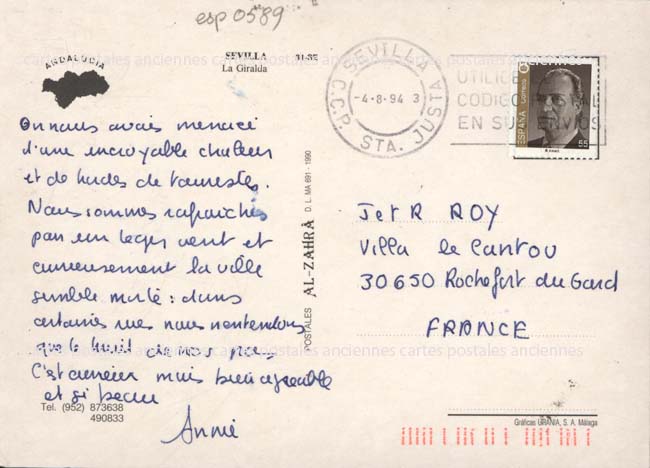 esp 0589
ANDALUCIA
SEVILLA 31-35
La Giralda
SEVILLA
-4-8-94 3
C.C.P. STA. JUSTA
UTILICE
CODIGO
EN SU ENVIOS
ESPAÑA
Correos
55
cartes postales anciennes cartes postales anciennes cartes postales anciennes
On nous avais menacé
d'une incroyable chaleur
et de hordes de touristes.
Nous sommes rafraichies
par un leger vent et
curieusement la ville
semble morte : dans
certaines rues nous n'entendons
que le bruit de nos pas.
C'est curieux mais bien agréable
et si beau
Annie
Tel. (952) 873638
490833
POSTALES AL-ZAHRÁ D. L. MA 691 - 1990
J et R ROY
Villa le Cantou
30650 Rochefort du Gard
FRANCE
cartes postales anciennes cartes postales anciennes
Gráficas URANIA, S. A. Málaga